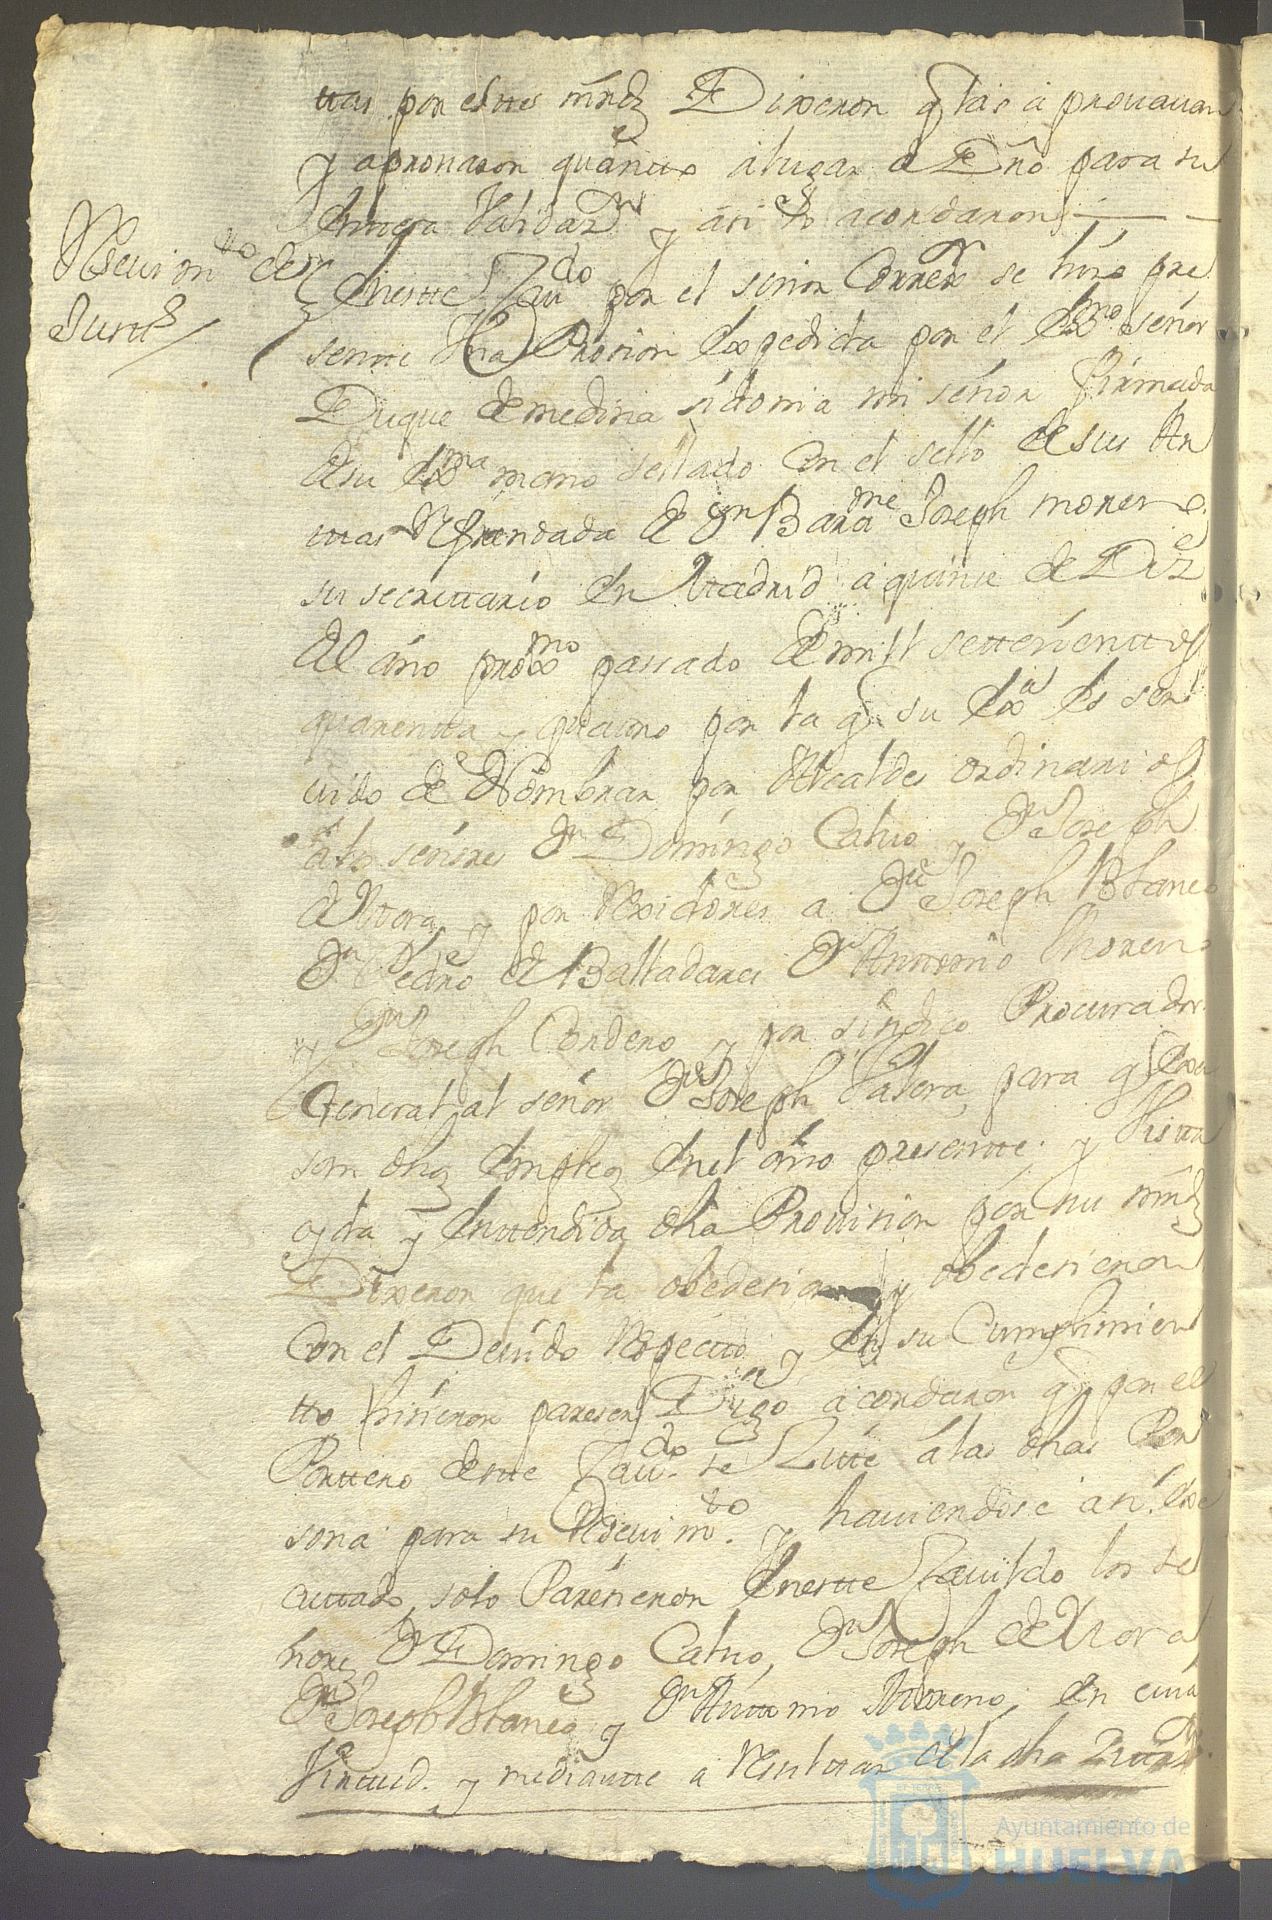 ttas por esttes mrds Dixeron q las aprouauan
y aprouaron quantto a lugar de Dro para su
Enttera Validazn y asi lo acordaron
Reseuimto de
Justa
Enestte Caudo por el señor Correxr se hizo pre
sentte Vna Prouision Expedida por el Exmo señor
Duque de medina sidonia mi señor firmada
de su Exma mano sellado Con el sello de sus Ar
mas Refrendada de Dn Barme Joseph moreno
su secrettario En Madrid a quinse de Dize
del año proxmo passado de mill settesienttos
quarentta y quatro por la q su Exa Es ser
uido de Nombrar por Alcaldes ordinarios
a los señores Dn Domingo Caluo y Dn Joseph
de Mora, y por Rexidores a Dn Joseph Blanco
Dn Pedro de Balladares Dn Anttonio Moreno
y Dn Joseph Cordero y por sindico Procurador
General, al señor Dn Joseph Valera, para q Exer
san dhos Empleos Enel año presentte; y Vista
oyda y Enttendida dha Prouision por sus mrds
Dixeron que la obedesian y obedesieron
Con el Deuido Respectto y En su Cumplimien
tto hisieron pareser Digo acordaron q por el
Porttero destte Caudo se Zitte a las dhas Per
sonas para su Reseuimto. y hauiendose asi Exe
cuttado, solo Paresieron Enestte Cauildo los se
ñores Dn Domingo Caluo, Dn Joseph de Mora
Dn Joseph Blanco y Dn Anttonio Moreno, En cuia
Virttud. y mediantte a Resulttar de la dha
Ayuntamiento de
HUELVA